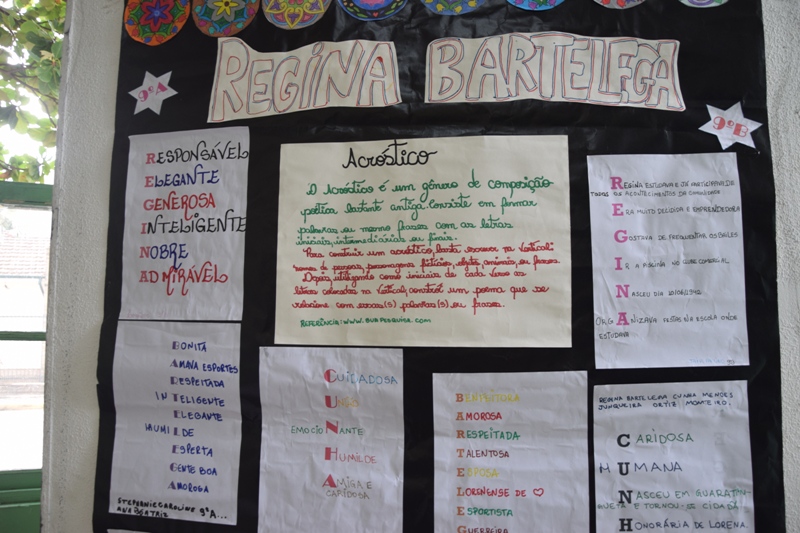 REGINA BARTELEGA
9ºA
9ºB
RESPONSÁVEL
ELEGANTE
GENEROSA
INTELIGENTE
NOBRE
ADMIRÁVEL
Acróstico
O Acróstico é um gênero de composição
poética bastante antiga. Consiste em formar
palavras ou mesmo frases com as letras
iniciais, intermediárias ou finais.
Para construir um acróstico, basta escrever na vertical:
nomes de pessoas, personagens fictícios, objetos, animais, ou frases.
Depois, utilizando como inicial de cada verso as
letras colocadas na vertical, constrói um poema que se
relacione com essas(s) palavras(s) ou frases.
REFERÊNCIA: WWW.SUAPESQUISA.COM
REGINA ESTUDAVA E JÁ PARTICIPAVA DE
TODOS OS ACONTECIMENTOS DA COMUNIDADE
ERA MUITO DECIDIDA E EMPRENDEDORA
GOSTAVA DE FREQUENTAR OS BAILES
IR A PISCINA NO CLUBE COMERCIAL
NASCEU DIA
ORGANIZAVA FESTAS NA ESCOLA ONDE
ESTUDAVA
BONITA
AMAVA ESPORTES
RESPEITADA
INTELIGENTE
ELEGANTE
HUMILDE
ESPERTA
GENTE BOA
AMOROSA
STEPHANIE CAROLINE 9ºA...
ANA BEATRIZ
CUIDADOSA
EMOCIONANTE
HUMILDE
AMIGA E
CARIDOSA
BENFEITORA
AMOROSA
RESPEITADA
TALENTOSA
ESPOSA
LORENENSE DE ♡
ESPORTISTA
GUERREIRA
REGINA BARTELEGA CUNHA MENDES
JUNQUEIRA ORTIZ MONTEIRO
CARIDOSA
HUMANA
NASCEU EM GUARATIN-
GUETÁ E TORNOU-SE CIDADÃ
HONORÁRIA DE LORENA.